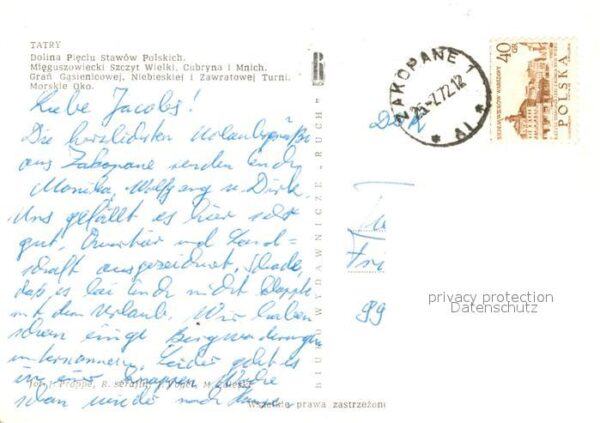 TATRY
Dolina Pięciu Stawów Polskich.
Mięguszowiecki Szczyt Wielki, Cubryna i Mnich.
Grań Gąsienicowej, Niebieskiej i Zawratowej Turni.
Morskie Oko.
Liebe Jacobs!
Die herzlichsten Urlaubsgrüße
aus Zakopane senden Euch
Monika, Wolfgang u. Dirk.
Uns gefällt es hier sehr
gut, Quartier und Land-
schaft ausgezeichnet. Schade,
daß es bei Euch nicht klappte
mit dem Urlaub. Wir haben
schon einige Bergwanderungen
unternommen. Leider geht es
in
schon wieder nach Hause.
BIURO WYDAWNICZE „RUCH"
Wszelkie prawa zastrzeżone
ZAKOPANE 1
25-7.72.12
40
GR
POLSKA
DDR
Fri
99
privacy protection
Datenschutz